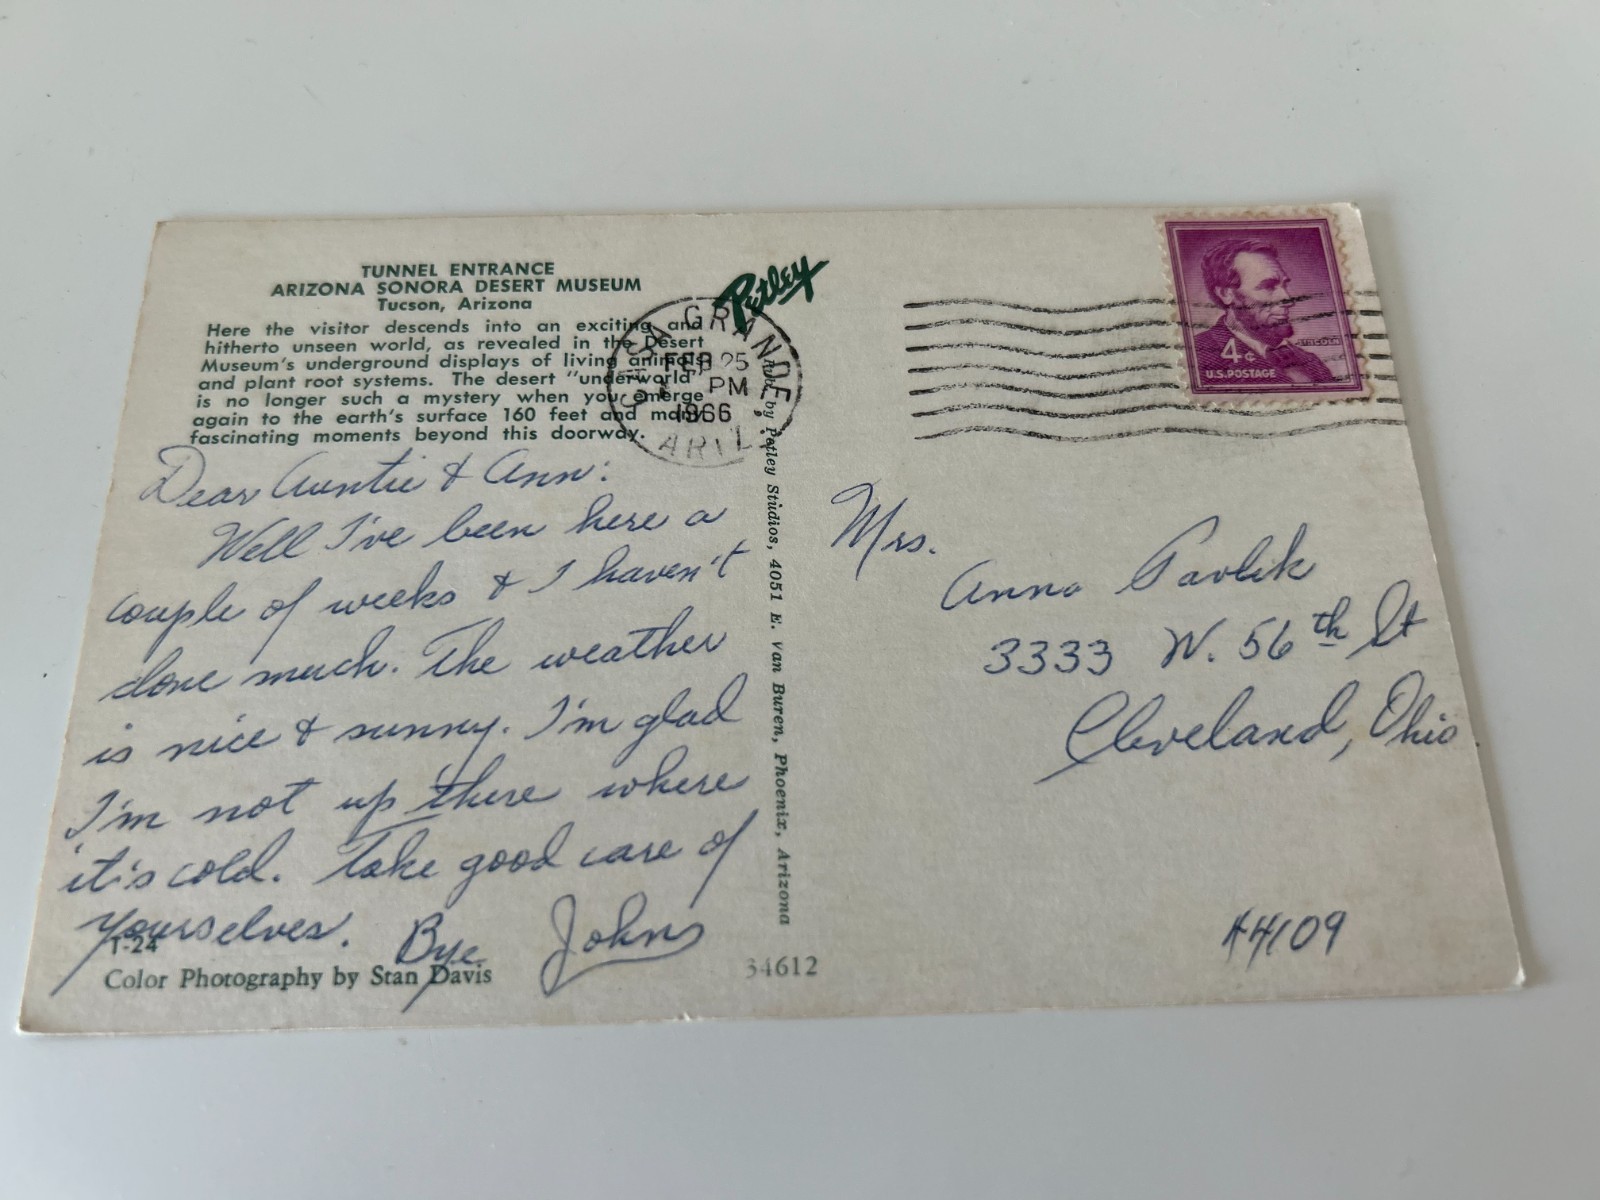 TUNNEL ENTRANCE
ARIZONA SONORA DESERT MUSEUM
Tucson, Arizona
Here the visitor descends into an exciting and
hitherto unseen world, as revealed in the Desert
Museum's underground displays of living animals
and plant root systems. The desert "underworld"
is no longer such a mystery when you emerge
again to the earth's surface 160 feet and many
fascinating moments beyond this doorway.
Dear Auntie & Ann:
Well I've been here a
couple of weeks & I haven't
done much. The weather
is nice & sunny. I'm glad
I'm not up there where
it's cold. Take good care of
yourselves. Bye John
T-24
Color Photography by Stan Davis
Petley
Pub. by Petley Studios, 4051 E. Van Buren, Phoenix, Arizona
34612
CASA GRANDE,
FEB 25
PM
1966
ARIZ.
LINCOLN
4¢
U.S. POSTAGE
Mrs.
Anna Pavlik
3333 W. 56th St
Cleveland, Ohio.
44109